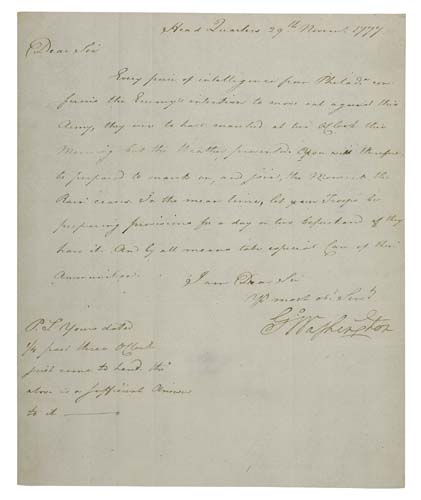 Head Quarters 29th Novemr. 1777
Dear Sir
Every piece of intelligence from Philada. con
firms the Enemy's intention to move out against this
Army, they were to have marched at two OClock this
Morning but the Weather prevented. You will therefore
be prepared to march on, and join, the Moment the
Rain ceases. In the mean time, let your Troops be
preparing provisions for a day or two beforehand if they
have it. And by all means take especial Care of their
Ammunition.
I am Dear Sir
Yr. most obt. Servt.
Go: Washington
P.S. Yours dated
1/4 past three OClock
just come to hand. the
above is a sufficient Answer
to it